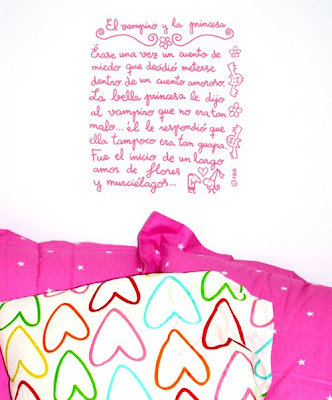 El vampiro y la princesa
Érase una vez un cuento de
miedo que decidió meterse
dentro de un cuento amoroso.
La bella princesa le dijo
al vampiro que no era tan
malo... él le respondió que
ella tampoco era tan guapa.
Fue el inicio de un largo
amor de flores
y murciélagos...